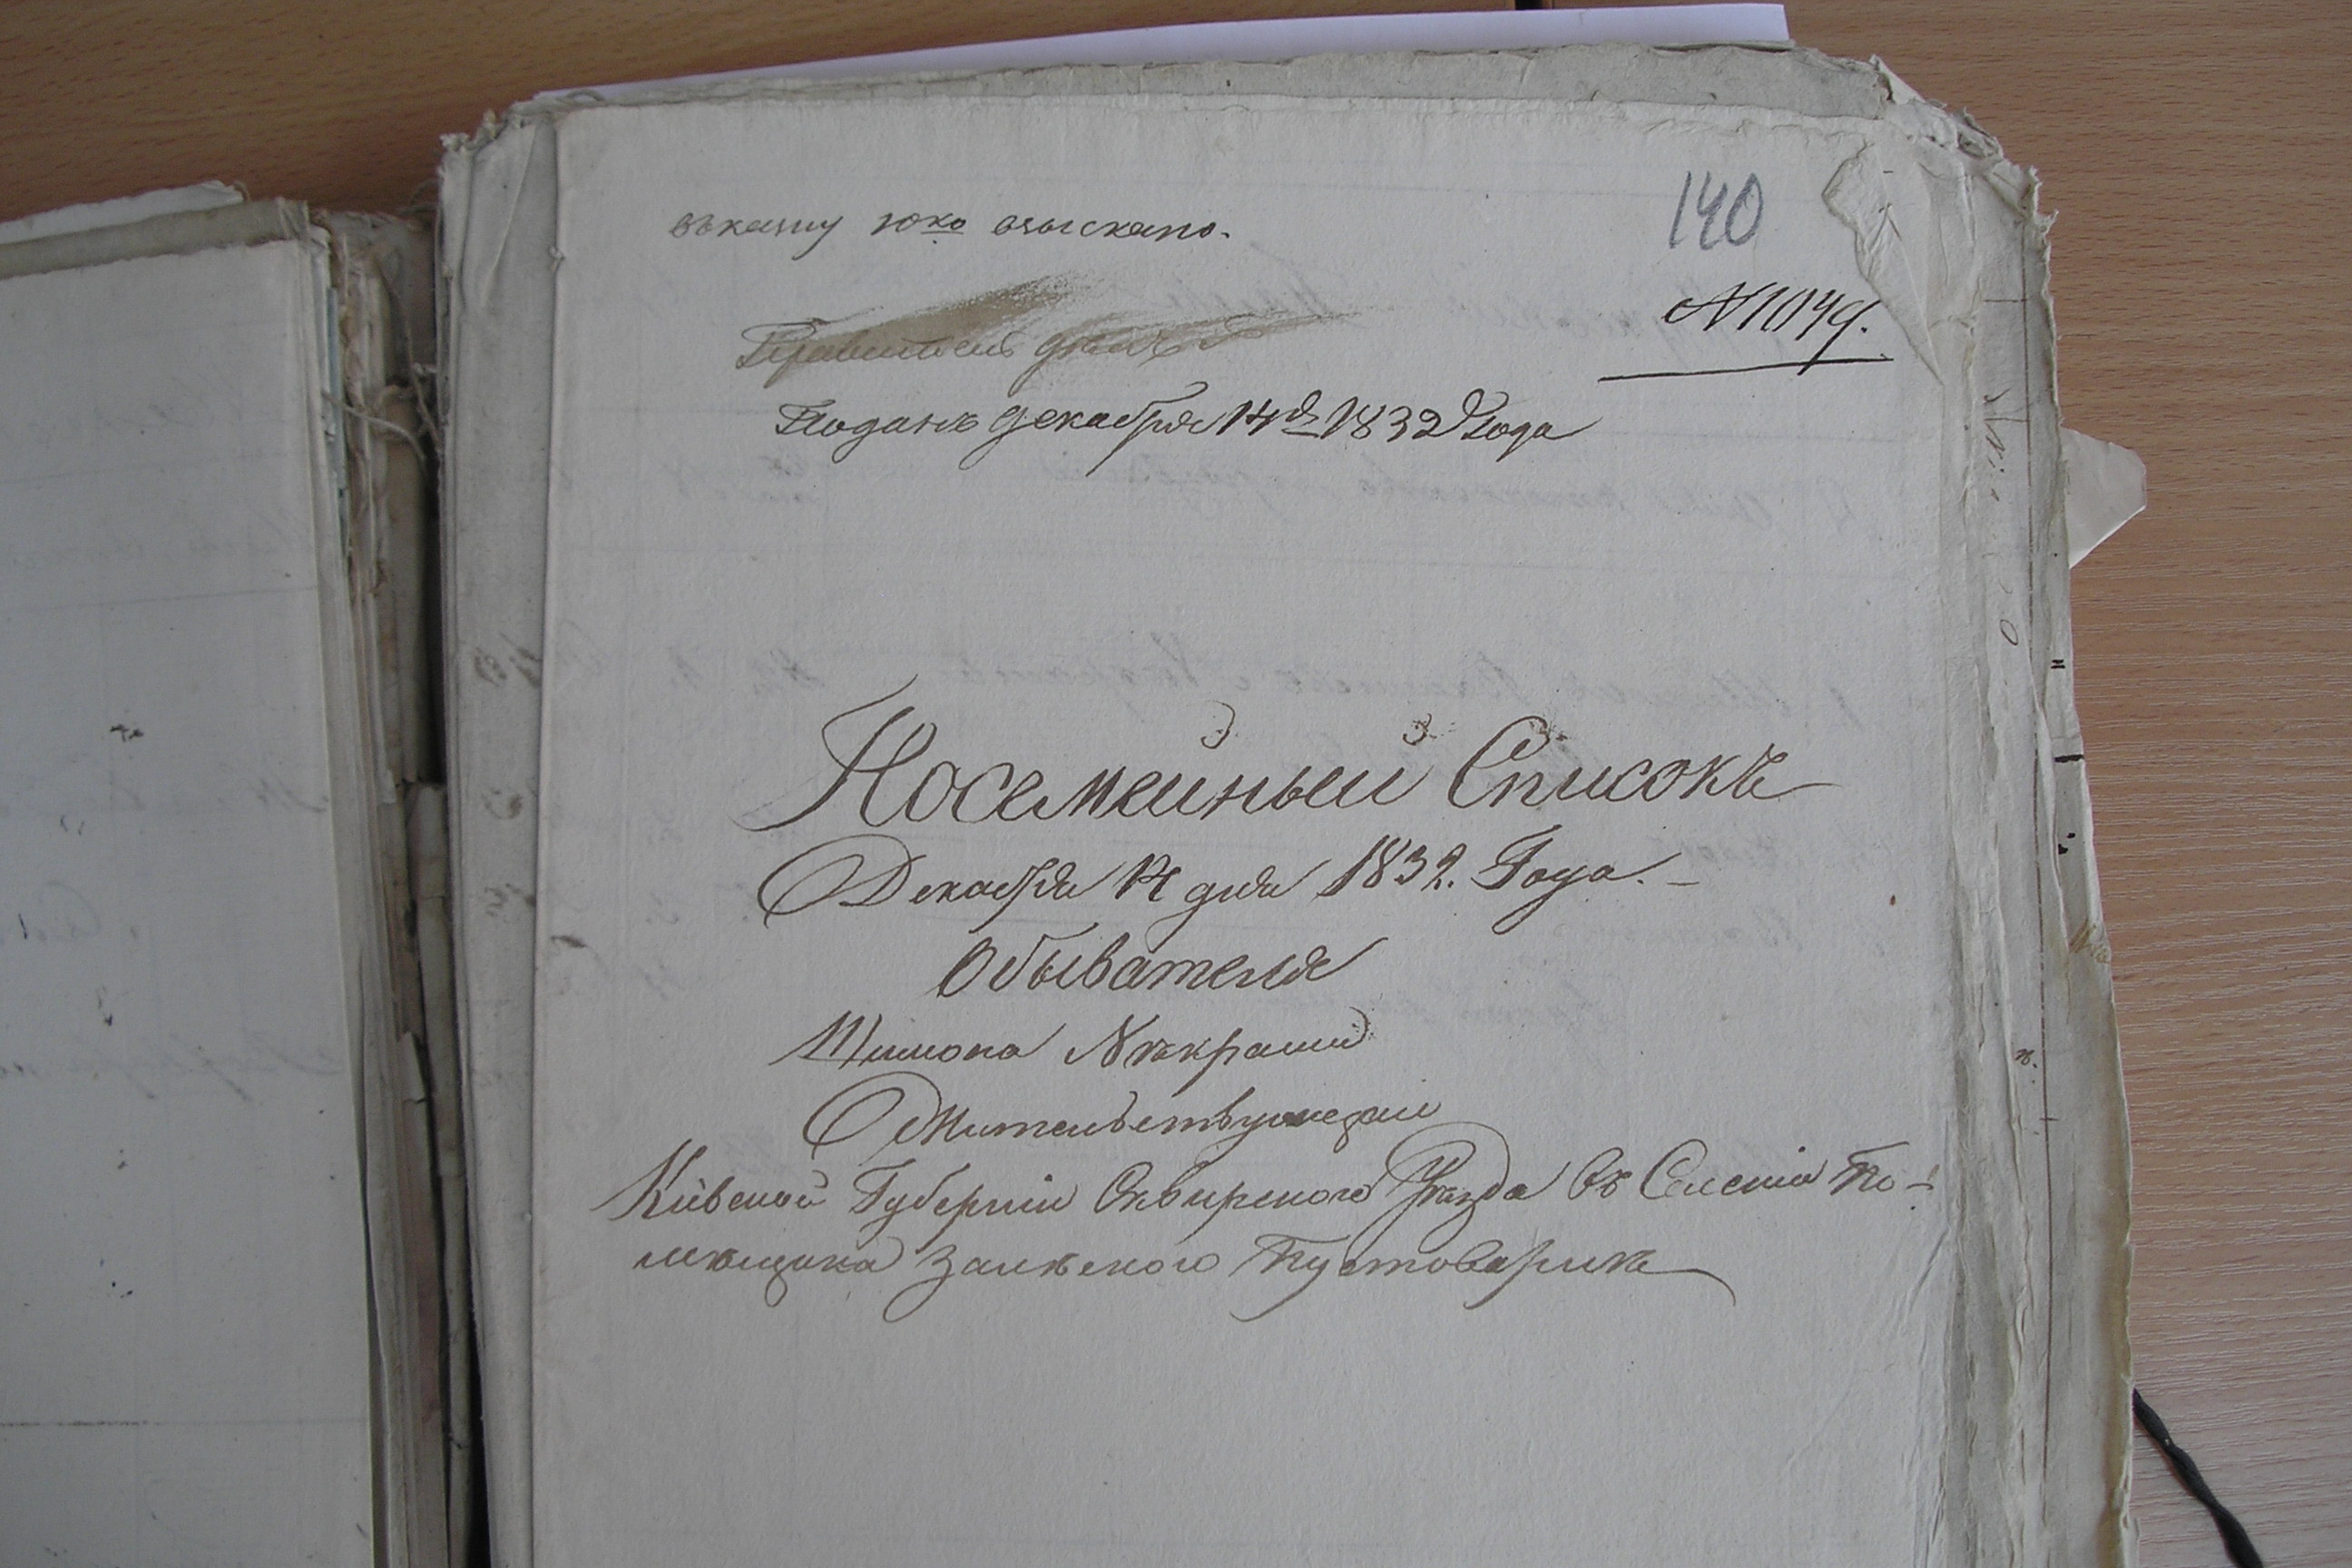 въказну 10ко взыскано.
140
N 1049.
Поданъ декабря 14 д 1832 года
Посемейный Списокъ
Декабря 14 дня 1832. Года. –
Обывателя
Тимоша Некраши
Жительствующаи
Кіевской Губерніи Сквирского Уѣзда Въ Селеніи По-
мѣщика Залѣского Пустоваркѣ